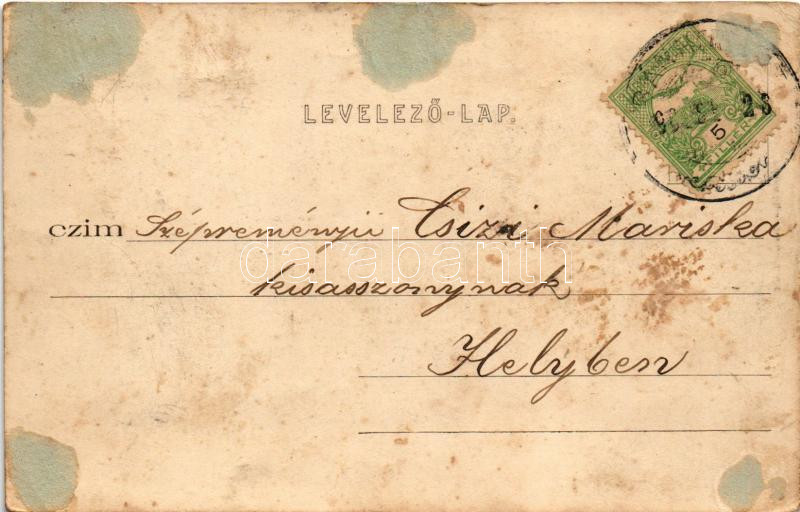 LEVELEZŐ-LAP.
23
5
czim Szépreményü Csizi Mariska
kisasszonynak
Helyben
darabanth